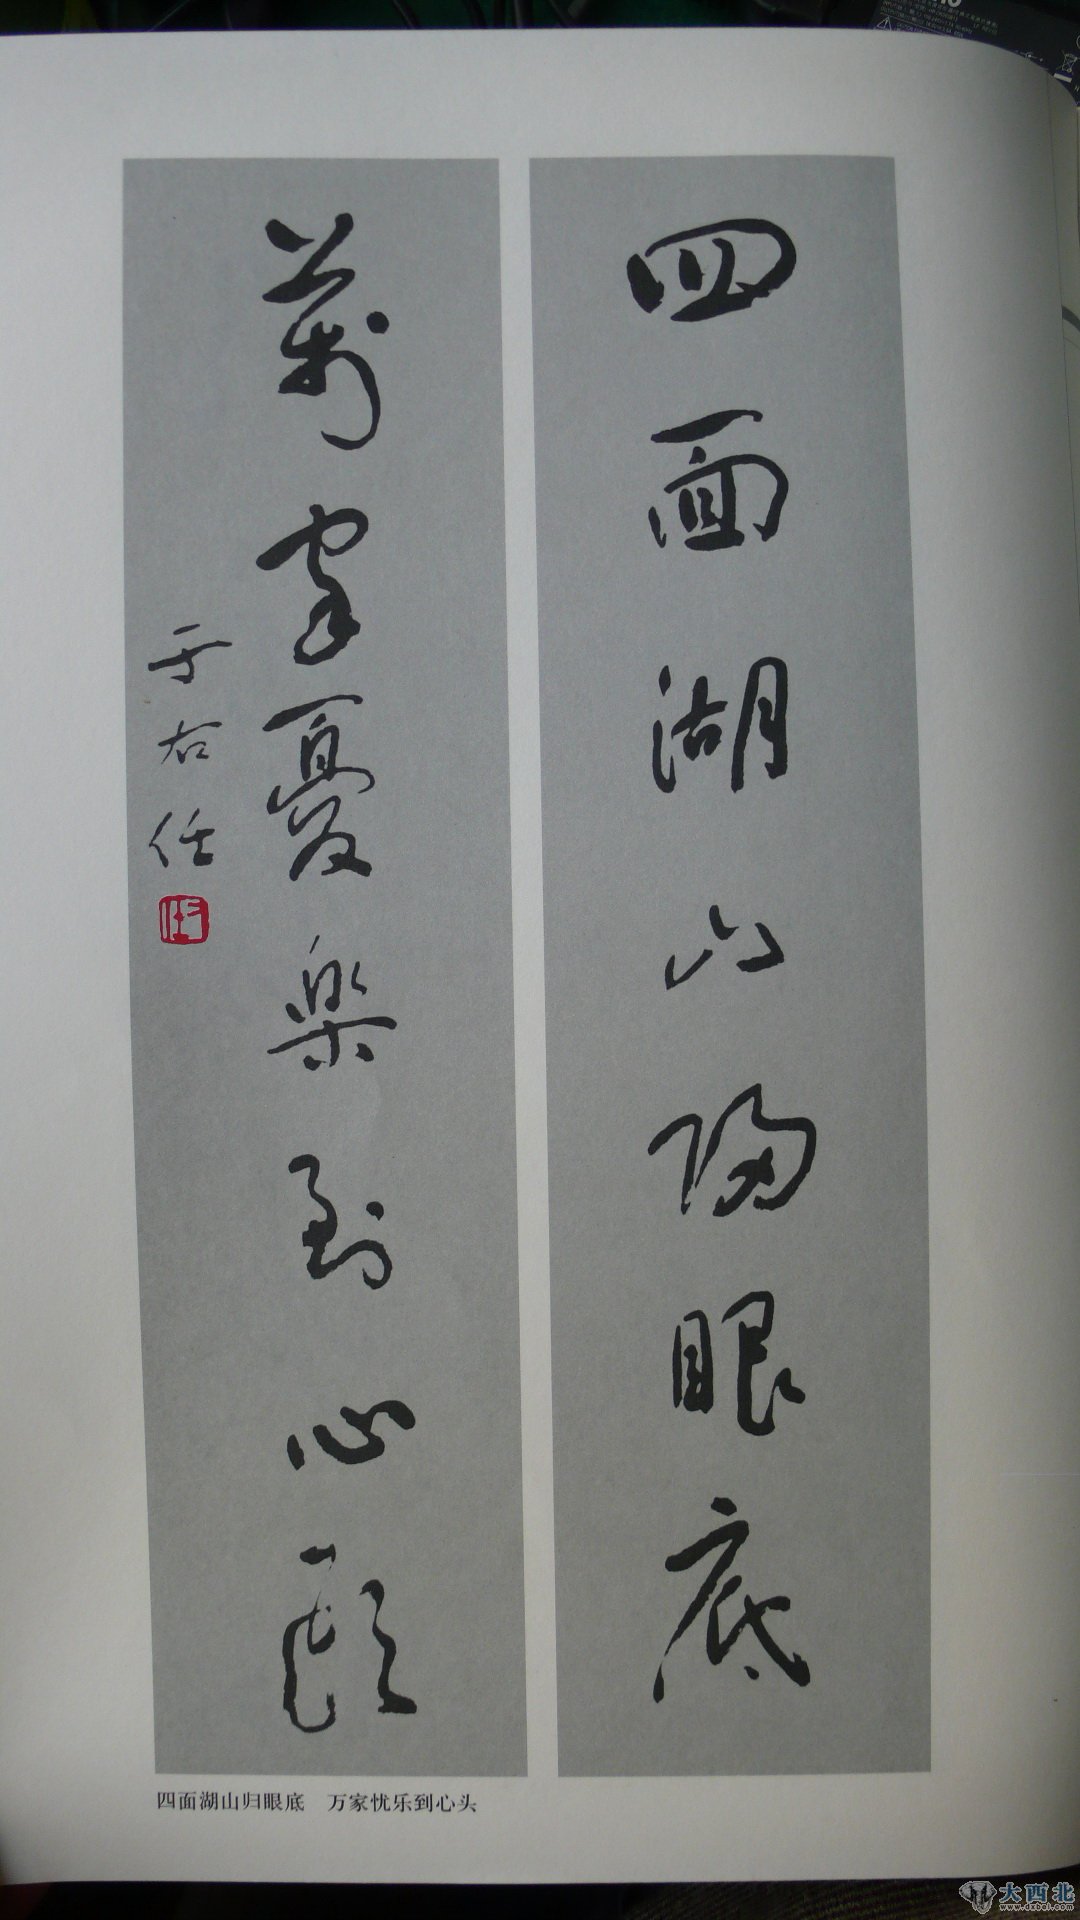 四面湖山歸眼底
萬家憂樂到心頭
于右任
四面湖山归眼底 万家忧乐到心头
大西北
www.dxbei.com